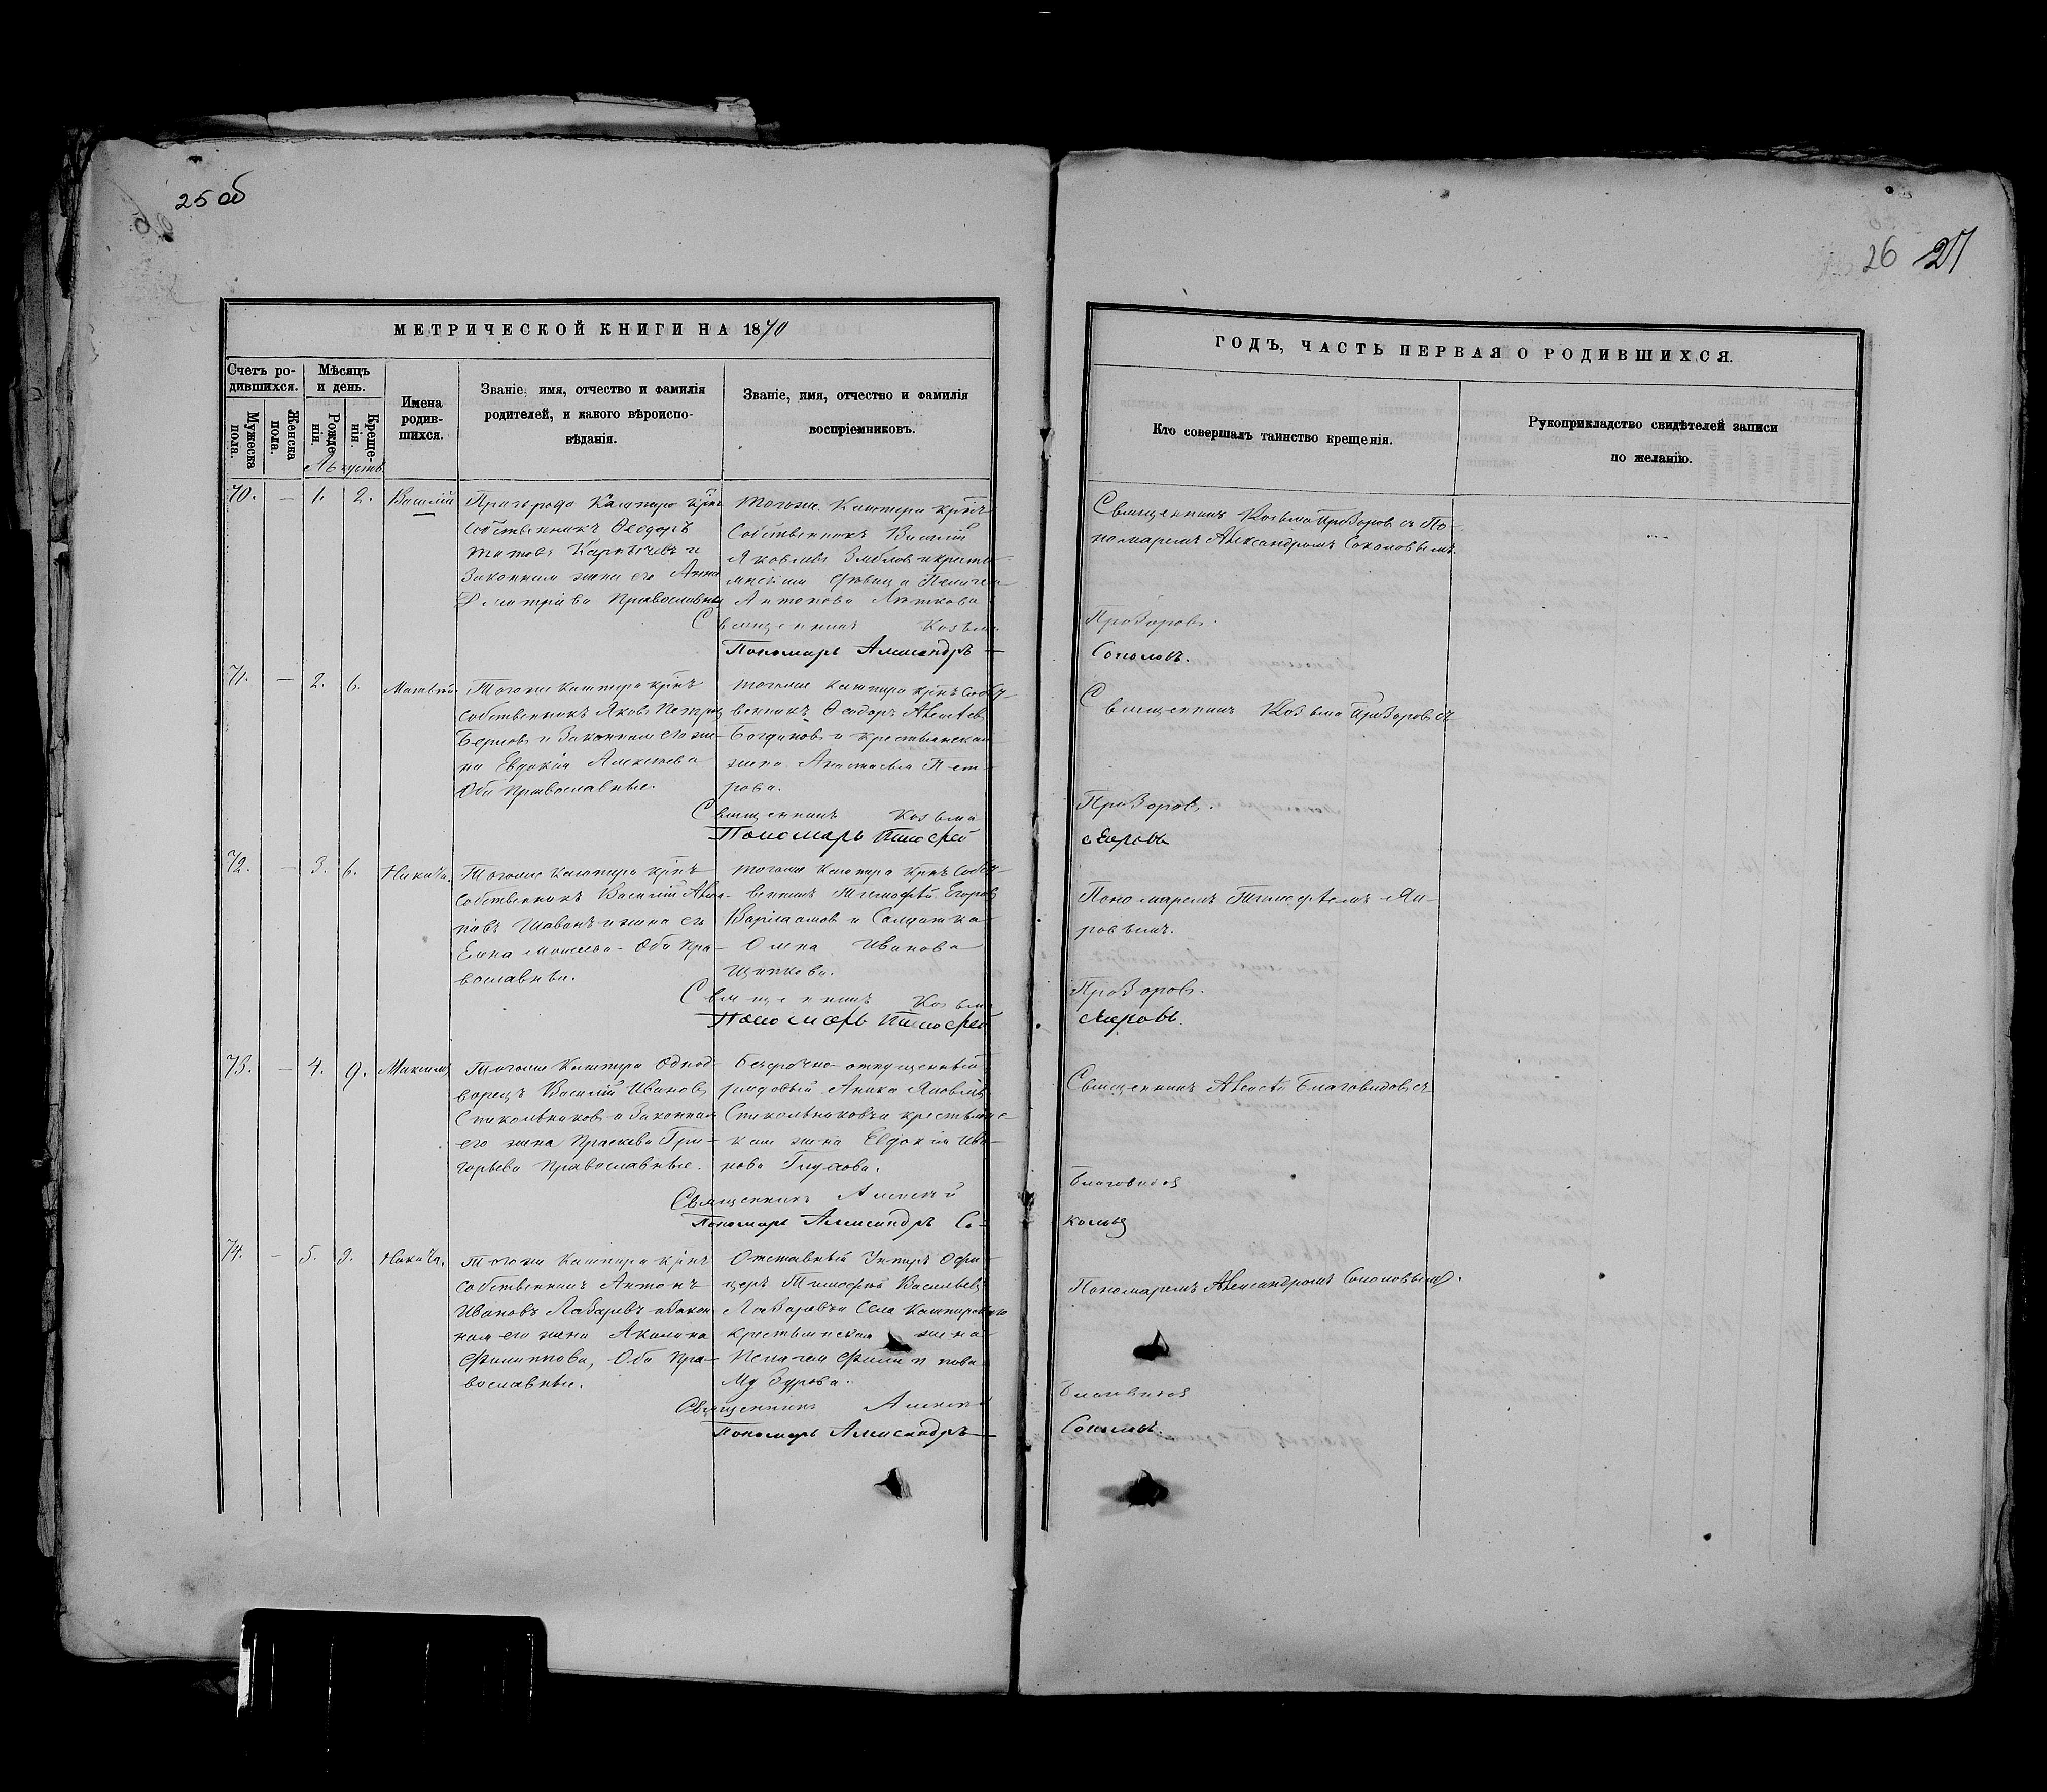 25 об
26 27
МЕТРИЧЕСКОЙ КНИГИ НА 1870
Счетъ ро-
дившихся.
Мужеска пола.
Женска пола.
Мѣсяцъ
и день.
Рожде-
нія.
Креще-
нія.
Имена
родив-
шихся.
Званіе, имя, отчество и фамилія
родителей, и какого вѣроиспо-
вѣданія.
Званіе, имя, отчество и фамилія
воспріемниковъ.
Августъ
70. — 1. 2. Василій
Пригорода Кашпира крнъ
Собственникъ Ѳеодоръ
Титовъ и
Законная жена его Анна
Димитріева Православные
Тогоже Кашпира крнъ
Собственникъ Василій
Яковлевъ и кресть-
янская дѣвица Пелагея
Антонова
Священникъ Козьма
Пономарь Александръ —
71. — 2. 6. Матвѣй.
Тогоже Кашпира крнъ
собственникъ Яковъ Петровъ
и Законная его же-
на Евдокія Алексѣева
Оба Православные.
Тогоже Кашпира крнъ Собст-
венникъ Ѳеодоръ Алексѣевъ
Богдановъ и крестьянская
жена Анастасія Пет-
рова.
Священникъ Козьма
Пономарь Тимофей
72. — 3. 6. Никита.
Тогоже Кашпира крнъ
собственникъ Василій
и жена его
Елена Моисеева. Оба Пра-
вославные.
Тогоже Кашпира крнъ Собст-
венникъ Тимофей Егоровъ
Варламовъ и Солдатка
Иванова
Священникъ Козьма
Пономарь Тимофей
73. — 4. 9. Максимъ
Тогоже Кашпира Однод-
ворецъ Василій Ивановъ
Стекольниковъ и Законная
его жена Праскева Гри-
горьева Православные.
Безсрочно отпущенный
рядовый Аника Яковлевъ
Стекольниковъ и крестьянс-
кая жена Евдокія Ива-
нова Глухова.
Священникъ Алексѣй
Пономарь Александръ Со-
74. — 5. 9. Никита.
Тогоже Кашпира крнъ
собственникъ Антонъ
Ивановъ Лазаревъ и Закон-
ная его жена Акилина
Филиппова, Оба Пра-
вославные.
Отставный Унтеръ Офи-
церъ Тимофей Васильевъ
Лазаревъ и Села Кашпировки
крестьянская жена
Пелагея Филиппова
Священникъ Алексѣй
Пономарь Александръ —
ГОДЪ, ЧАСТЬ ПЕРВАЯ О РОДИВШИХСЯ.
Кто совершалъ таинство крещенія.
Рукоприкладство свидѣтелей записи
по желанію.
Священникъ Козьма Прозоровъ съ По-
номаремъ Александромъ Соколовымъ.
Прозоровъ.
Соколовъ.
Священникъ Козьма Прозоровъ съ
Прозоровъ.
Яировъ
Пономаремъ Тимофеемъ Яи-
ровымъ.
Прозоровъ.
Яировъ.
Священникъ Алексѣй Благовидовъ съ
Благовидов
коловъ
Пономаремъ Александромъ Соколовымъ.
Благовидов
Соколовъ.